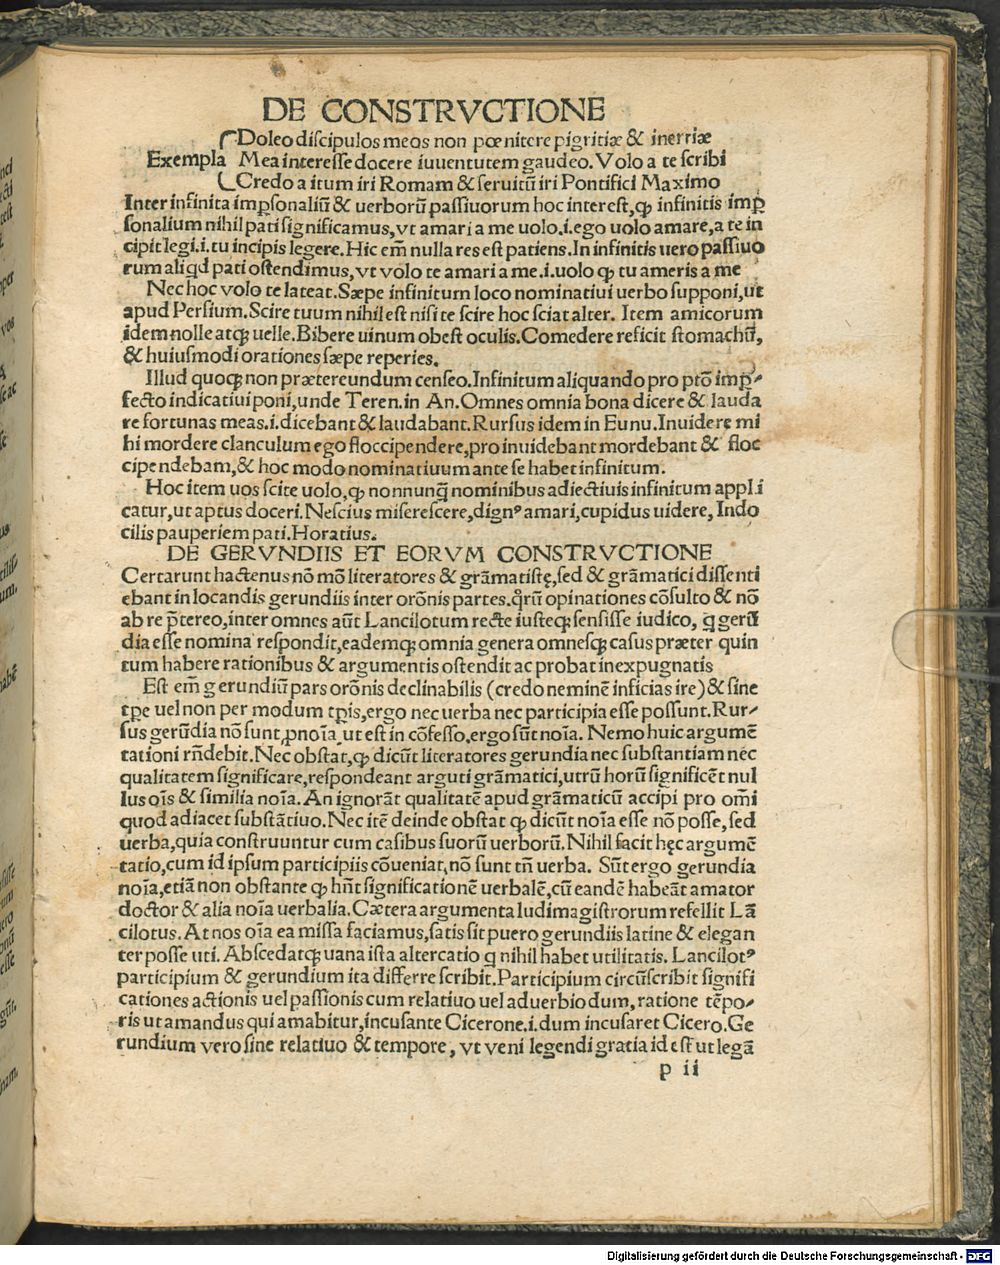 DE CONSTRVCTIONE
Doleo discipulos meos non pœnitere pigritiæ & inertiæ
Exempla Mea interesse docere iuuentutem gaudeo. Volo a te scribi
Credo a itum iri Romam & seruitū iri Pontifici Maximo
Inter infinita imꝑsonaliū & uerborū passiuorum hoc interest, ꝙ infinitis imꝑ
sonalium nihil pati significamus, vt amari a me uolo .i. ego uolo amare, a te in
cipit legi .i. tu incipis legere. Hic em̄ nulla res est patiens. In infinitis uero passiuo
rum aliqd pati ostendimus, vt volo te amari a me .i. uolo ꝙ tu ameris a me
Nec hoc volo te lateat. Sæpe infinitum loco nominatiui uerbo supponi, ut
apud Persium. Scire tuum nihil est nisi te scire hoc sciat alter. Item amicorum
idem nolle atqꝫ uelle. Bibere uinum obest oculis. Comedere reficit stomachū,
& huiusmodi orationes sæpe reperies.
Illud quoqꝫ non prætereundum censeo. Infinitum aliquando pro ptō imꝑ-
fecto indicatiui poni, unde Teren. in An. Omnes omnia bona dicere & lauda
re fortunas meas .i. dicebant & laudabant. Rursus idem in Eunu. Inuidere mi
hi mordere clanculum ego floccipendere, pro inuidebant mordebant & floc
cipendebam, & hoc modo nominatiuum ante se habet infinitum.
Hoc item uos scite uolo, ꝙ nonnunq̄ nominibus adiectiuis infinitum appli
catur, ut aptus doceri. Nescius miserescere, dignꝰ amari, cupidus uidere, Indo
cilis pauperiem pati. Horatius.
DE GERVNDIIS ET EORVM CONSTRVCTIONE
Certarunt hactenus nō mō literatores & grāmatistę, sed & grāmatici dissenti
ebant in locandis gerundiis inter orōnis partes. qͦrū opinationes cōsulto & nō
ab re p̄tereo, inter omnes aūt Lancilotum recte iusteqꝫ sensisse iudico, q gerū
dia esse nomina respondit, eademqꝫ omnia genera omnesqꝫ casus præter quin
tum habere rationibus & argumentis ostendit ac probat inexpugnatis
Est em̄ gerundiū pars orōnis declinabilis (credo neminē inficias ire) & sine
tp̄e uel non per modum tp̄is, ergo nec uerba nec participia esse possunt. Rur-
sus gerūdia nō sunt ꝓnoīa ut est in cōfesso, ergo sūt noīa. Nemo huic argumē
tationi rn̄debit. Nec obstat, ꝙ dicūt literatores gerundia nec substantiam nec
qualitatem significare, respondeant arguti grāmatici, utrū horū significēt nul
lus oīs & similia noīa. An ignorāt qualitatē apud grāmaticū accipi pro om̄i
quod adiacet substātiuo. Nec itē deinde obstat ꝙ dicūt noīa esse nō posse, sed
uerba, quia construuntur cum casibus suorū uerborū. Nihil facit hęc argumē
tatio, cum id ipsum participiis cōueniat, nō sunt tn̄ uerba. Sūt ergo gerundia
noīa, etiā non obstante ꝙ hn̄t significationē uerbalē, cū eandē habeāt amator
doctor & alia noīa uerbalia. Cætera argumenta ludimagistrorum refellit Lā
cilotus. At nos oīa ea missa faciamus, satis sit puero gerundiis latine & elegan
ter posse uti. Abscedatqꝫ uana ista altercatio q nihil habet utilitatis. Lancilotꝰ
participium & gerundium ita differre scribit. Participium circūscribit signifi
cationes actionis uel passionis cum relatiuo uel aduerbio dum, ratione tēpo-
ris ut amandus qui amabitur, incusante Cicerone .i. dum incusaret Cicero. Ge
rundium vero sine relatiuo & tempore, vt veni legendi gratia id est ut legā
p ii
Digitalisierung gefördert durch die Deutsche Forschungsgemeinschaft - DFG